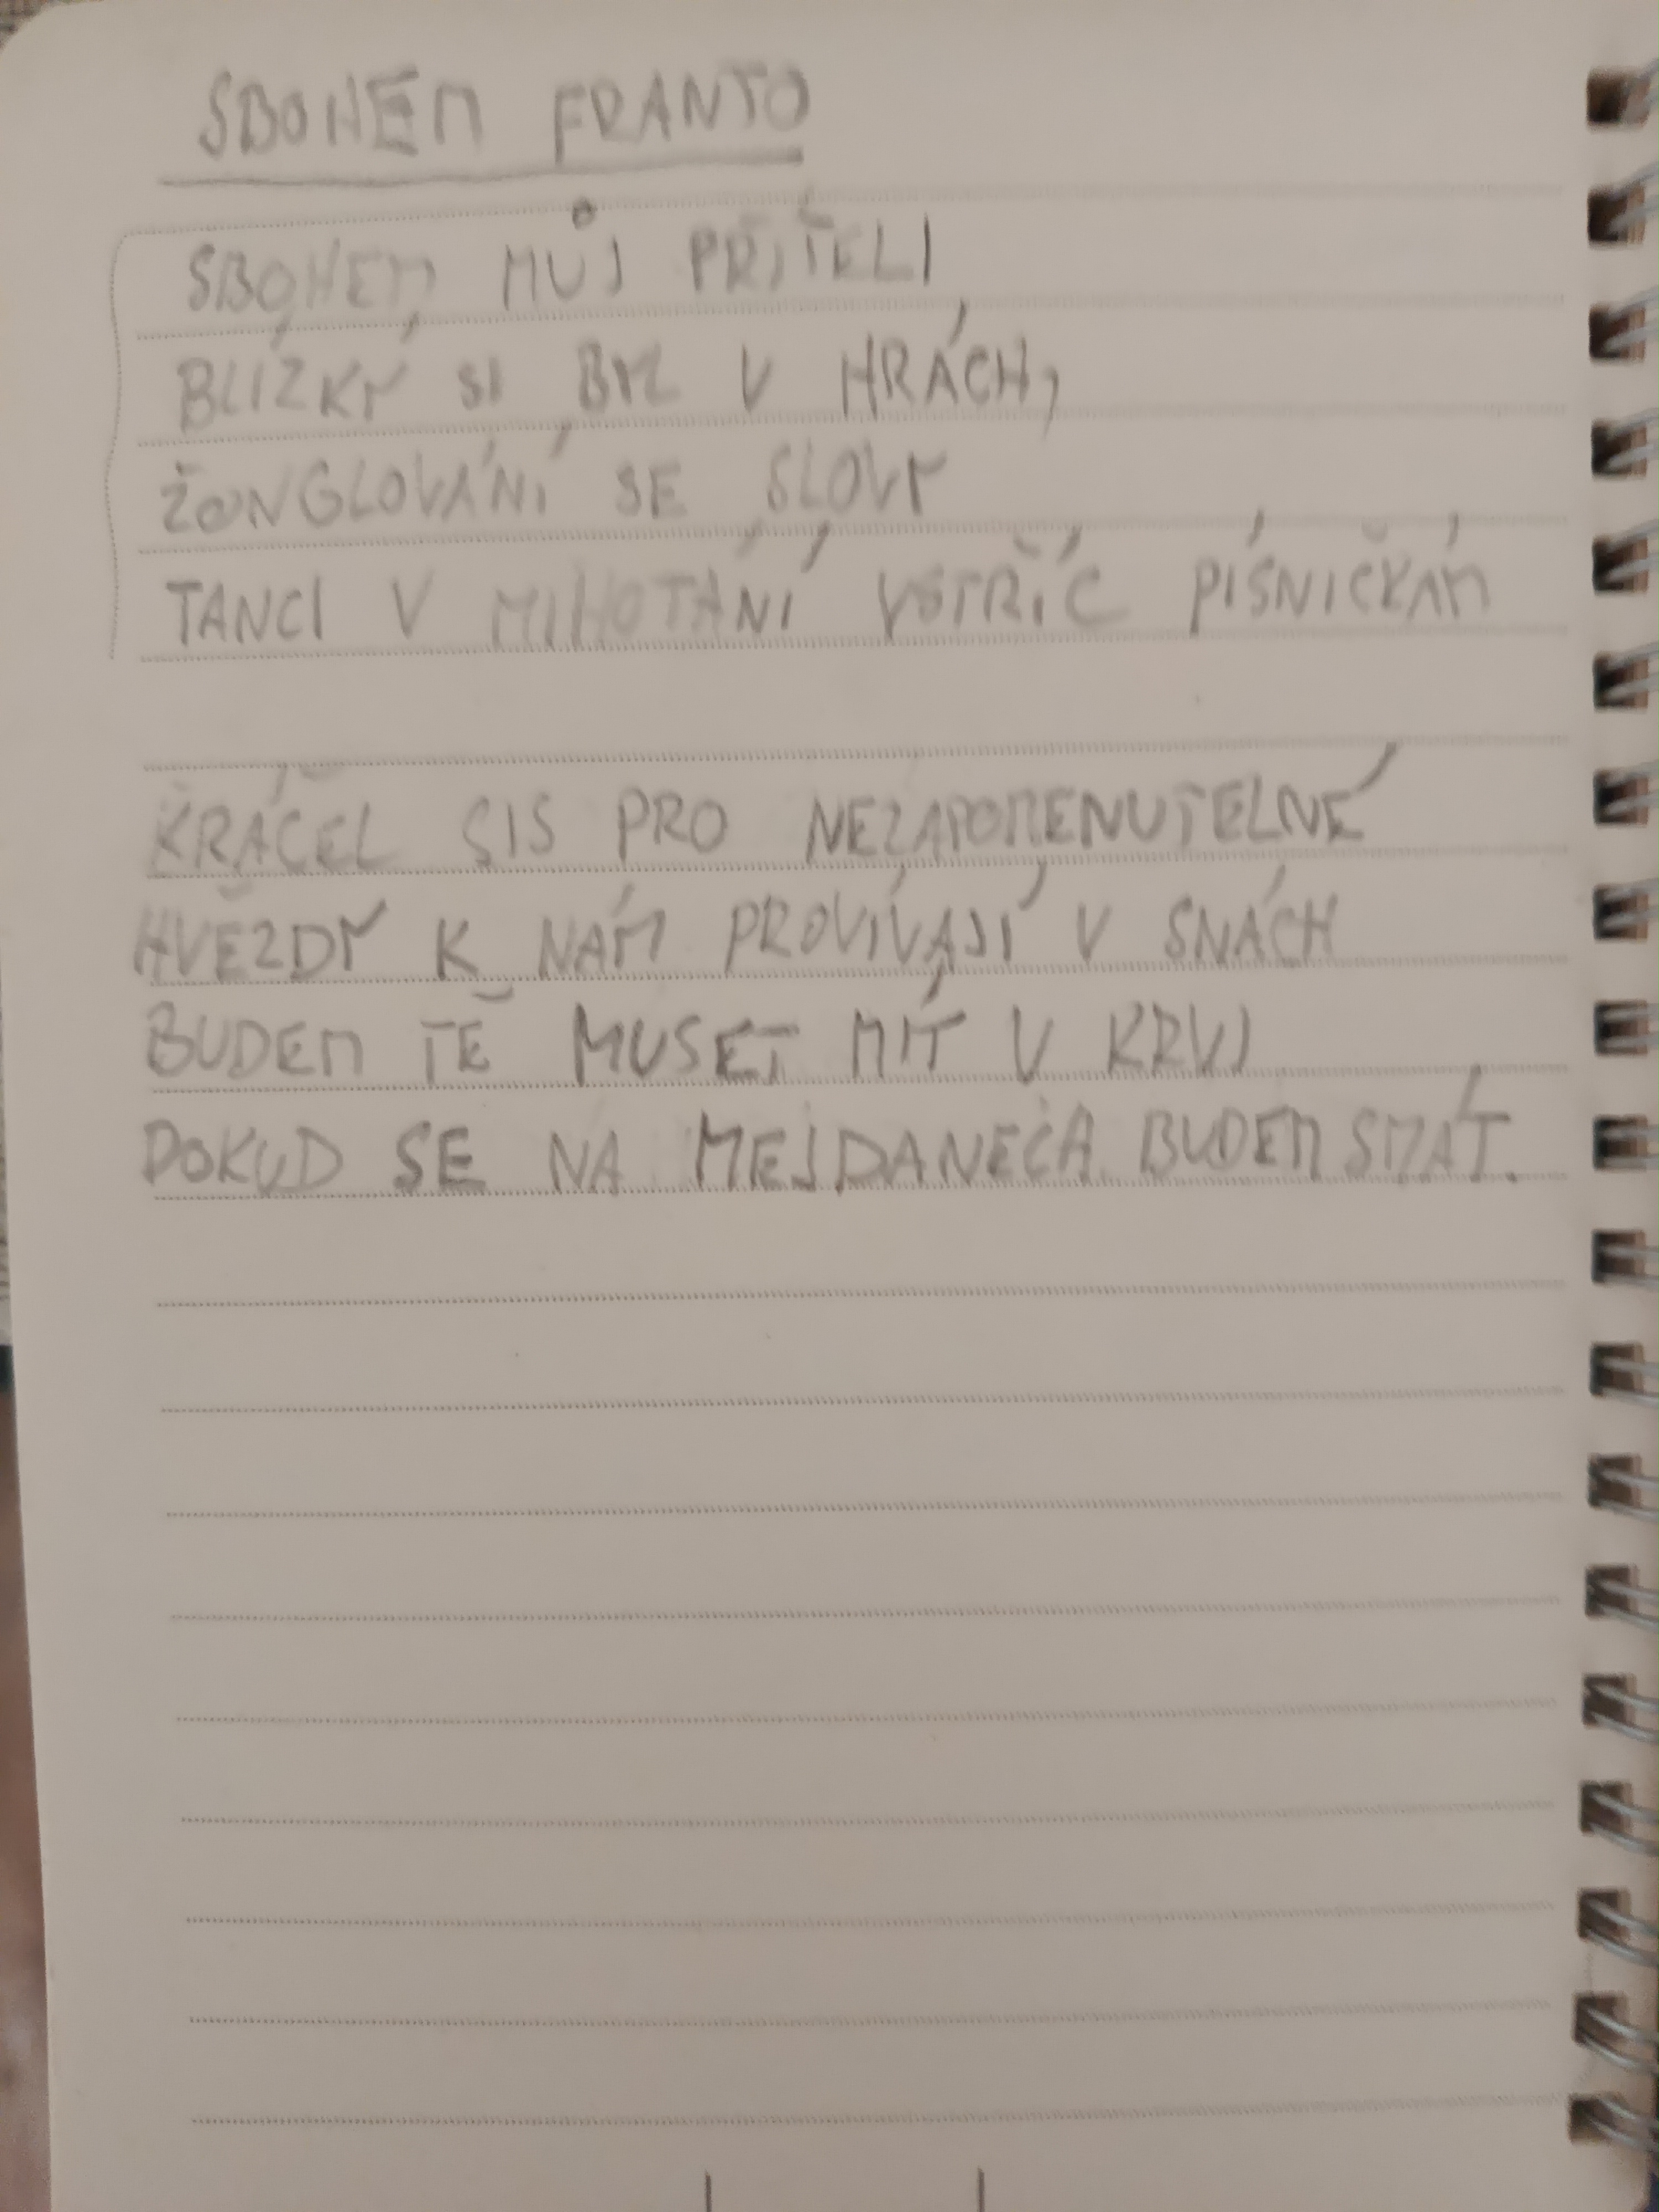 SBOHEM FRANTO
SBOHEM MŮJ PŘÍTELI
BLÍZKÝ SI BYL V HRÁCH,
ŽONGLOVÁNÍ SE SLOVY
TANCI V MIHOTÁNÍ VSTŘÍC PÍSNIČKÁM
KRÁČEL SIS PRO NEZAPOMENUTELNÉ
HVĚZDY K NÁM PROVÍVAJÍ V SNÁCH
BUDEM TĚ MUSET MÍT V KRVI
DOKUD SE NA MEJDANECH BUDEM SMÁT.